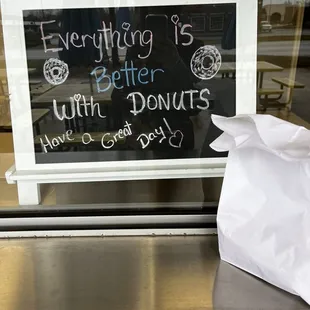 Everything is
Better
With DONUTS
Have a Great Day!